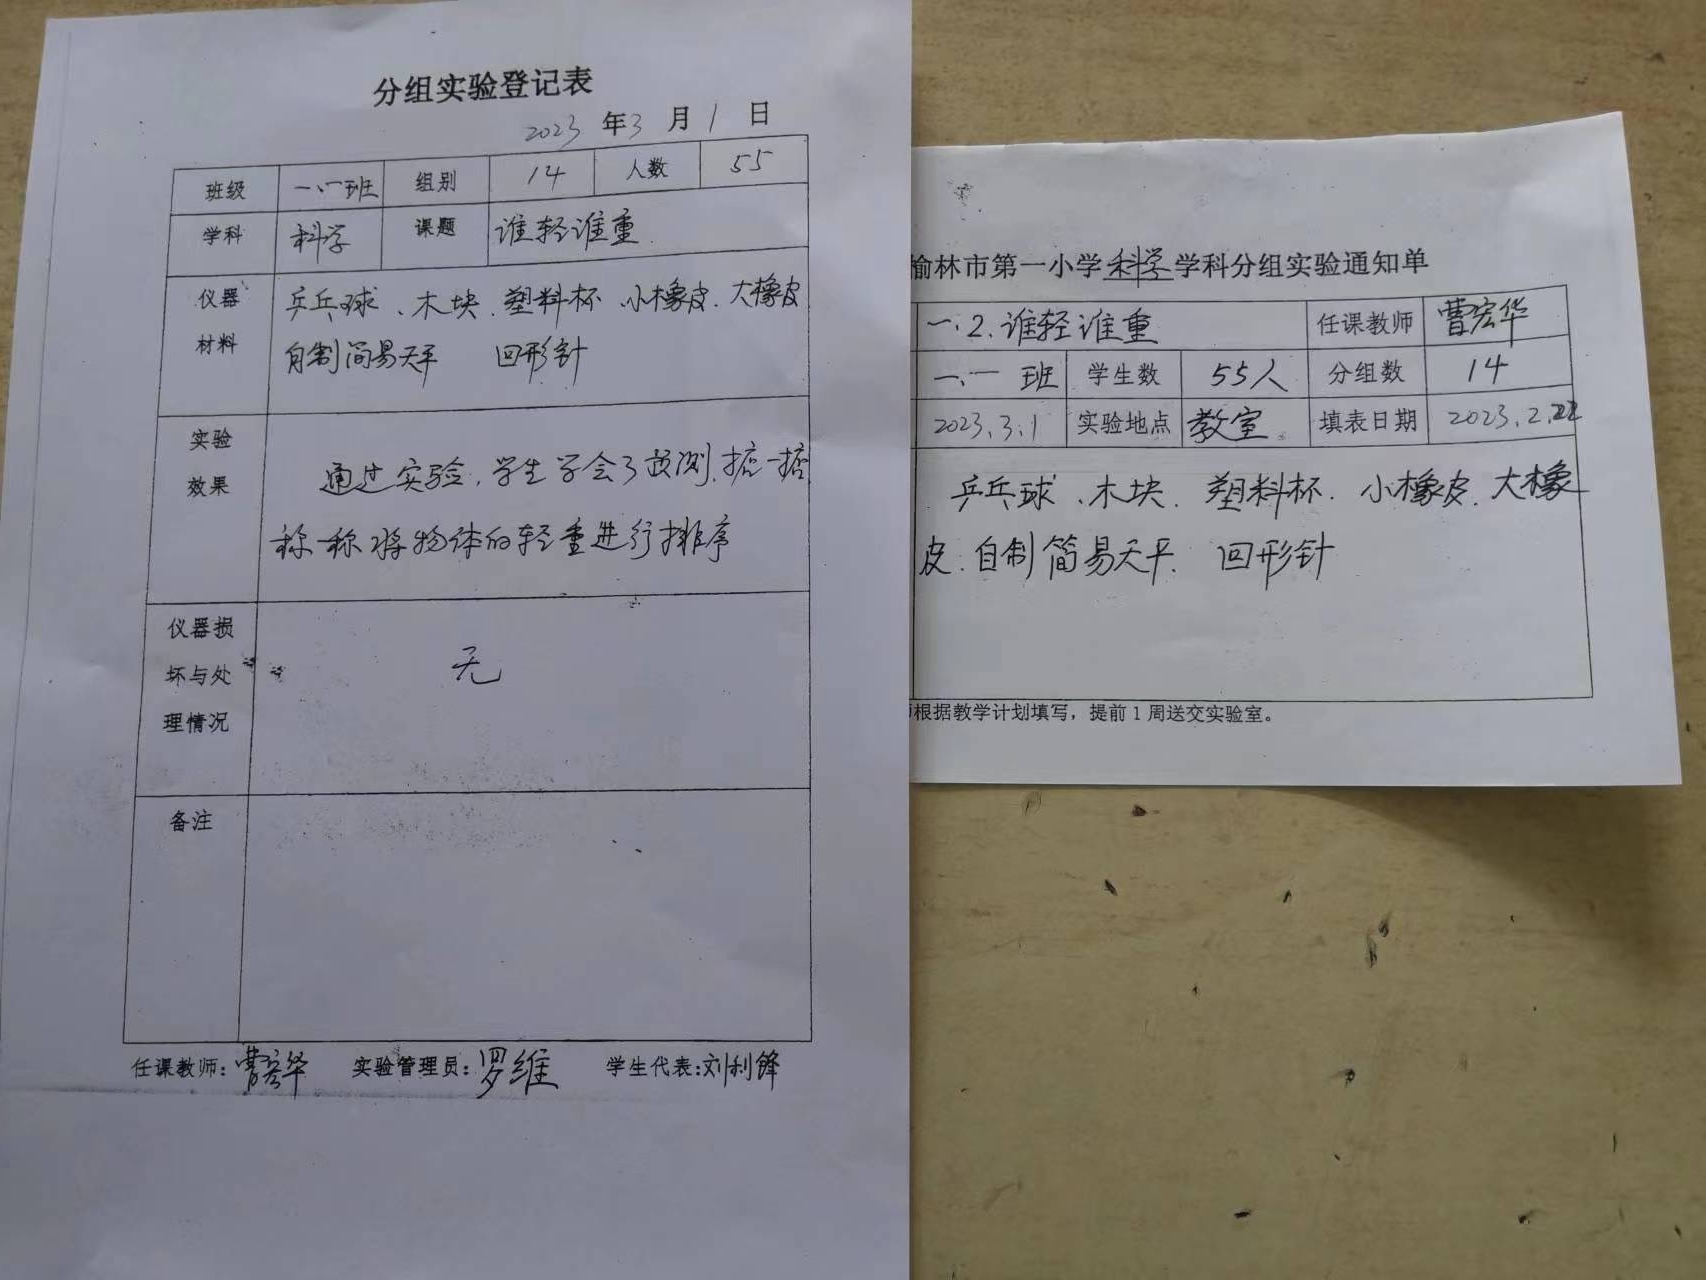 分组实验登记表
2023 年 3 月 1 日
班级 一.一班 组别 14 人数 55
学科 科学 课题 谁轻谁重
仪器 乒乓球、木块、塑料杯、小橡皮、大橡皮
材料 自制简易天平 回形针
实验
效果 通过实验,学生学会了预测、掂一掂
称一称将物体的轻重进行排序
仪器损
坏与处 无
理情况
备注
任课教师:曹宏华 实验管理员:罗维 学生代表:刘利锋
榆林市第一小学科学学科分组实验通知单
一.2.谁轻谁重 任课教师 曹宏华
一.一 班 学生数 55人 分组数 14
2023.3.1 实验地点 教室 填表日期 2023.2.22
乒乓球、木块、塑料杯、小橡皮、大橡
皮、自制简易天平、回形针
根据教学计划填写,提前1周送交实验室。